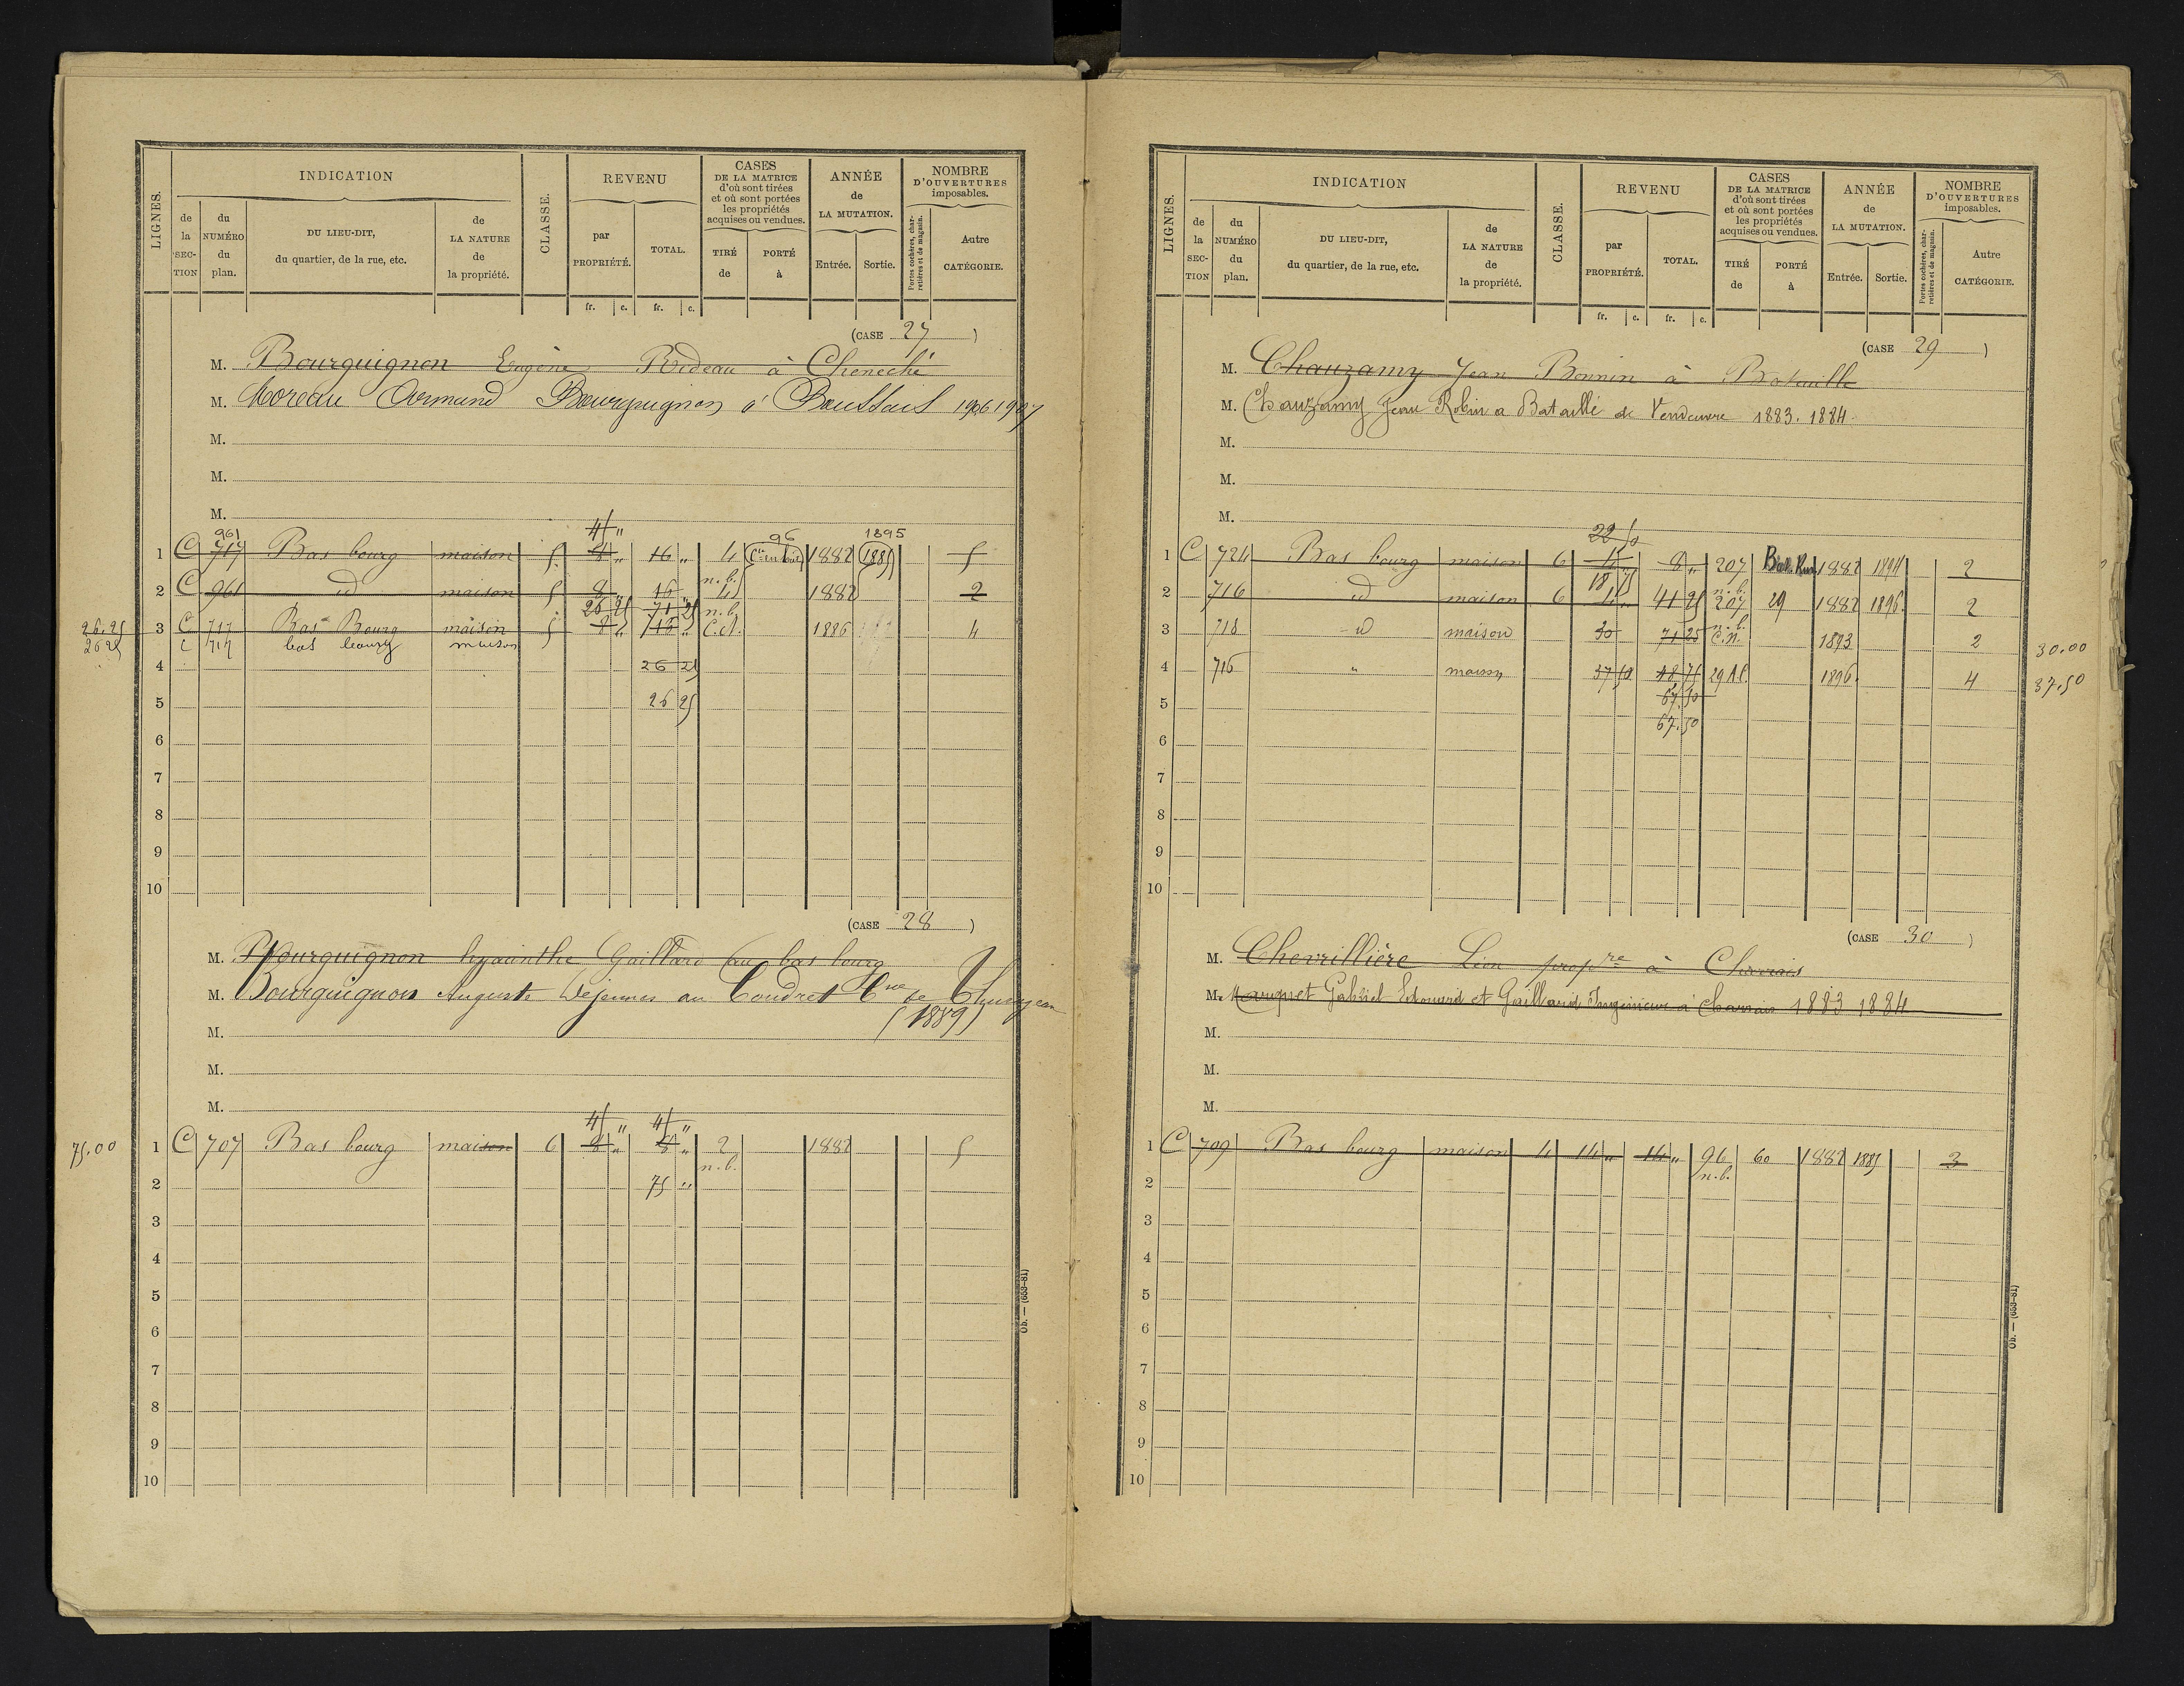 LIGNES.
INDICATION
de la SECTION
du NUMÉRO du plan.
DU LIEU-DIT, du quartier, de la rue, etc.
de LA NATURE de la propriété.
CLASSE.
REVENU
par PROPRIÉTÉ.
TOTAL.
fr. c. fr. c.
CASES DE LA MATRICE d'où sont tirées et où sont portées les propriétés acquises ou vendues.
TIRÉ de
PORTÉ à
ANNÉE de LA MUTATION.
Entrée. Sortie.
NOMBRE D'OUVERTURES imposables.
Portes cochères, charretières et de magasin.
Autre CATÉGORIE.
(CASE 27)
M. Bourguignon Eugène Rideau à Cheneché
M. Moreau Armand Bourguignon à 1906 1907
M.
M.
M.
4 "
961 96 1895
1 C 717 Bas bourg maison 5 8 " 16 " 4 1882 1885 5
n.b.
2 C 961 id maison 5 8 " 16 " 4 1882 2
26 25 71 25 n.b.
26.25 3 C 717 Bas Bourg maison 5 8 " " C.N. 1886 4
26 25 C 717 bas bourg maison
4 26 25
5 26 25
6
7
8
9
10
(CASE 28)
M. Bourguignon hyacinthe Gaillard au bas bourg
M. Bourguignon Auguste Dejeunes au Coudret Cne de
M. (1889)
M.
M.
75.00 1 C 707 Bas bourg maison 6 8 " 8 " 2 1882 5
n.b.
2 75 "
3
4
5
6
7
8
9
10
Ob. — (653-81)
LIGNES.
INDICATION
de la SECTION
du NUMÉRO du plan.
DU LIEU-DIT, du quartier, de la rue, etc.
de LA NATURE de la propriété.
CLASSE.
REVENU
par PROPRIÉTÉ.
TOTAL.
fr. c. fr. c.
CASES DE LA MATRICE d'où sont tirées et où sont portées les propriétés acquises ou vendues.
TIRÉ de
PORTÉ à
ANNÉE de LA MUTATION.
Entrée. Sortie.
NOMBRE D'OUVERTURES imposables.
Portes cochères, charretières et de magasin.
Autre CATÉGORIE.
(CASE 29)
M. Chauzamy Jean Bonnin à Bataille
M. Chauzamy Jean Robin a Bataille de Vendeuvre 1883. 1884.
M.
M.
M.
22 50
1 C 724 Bas bourg maison 6 4 8 " 207 1882 1894 2
18 75 n.b.
2 716 id maison 6 4 " 41 25 207 29 1882 1896 2
n.b.
3 718 id maison 30 71 25 C.N. 1893 2 30.00
4 716 " maison 37 50 48 75 29 1896 4 37.50
67.50
5
67.50
6
7
8
9
10
(CASE 30)
M. Chevrillière Léon propre à Charrais
M. Gabriel Edouard et Gaillard Ingénieur à Charrais 1883 1884
M.
M.
M.
1 C 709 Bas bourg maison 4 14 " 14 " 96 60 1882 1885 3
n.b.
2
3
4
5
6
7
8
9
10
Ob. — (653-81)